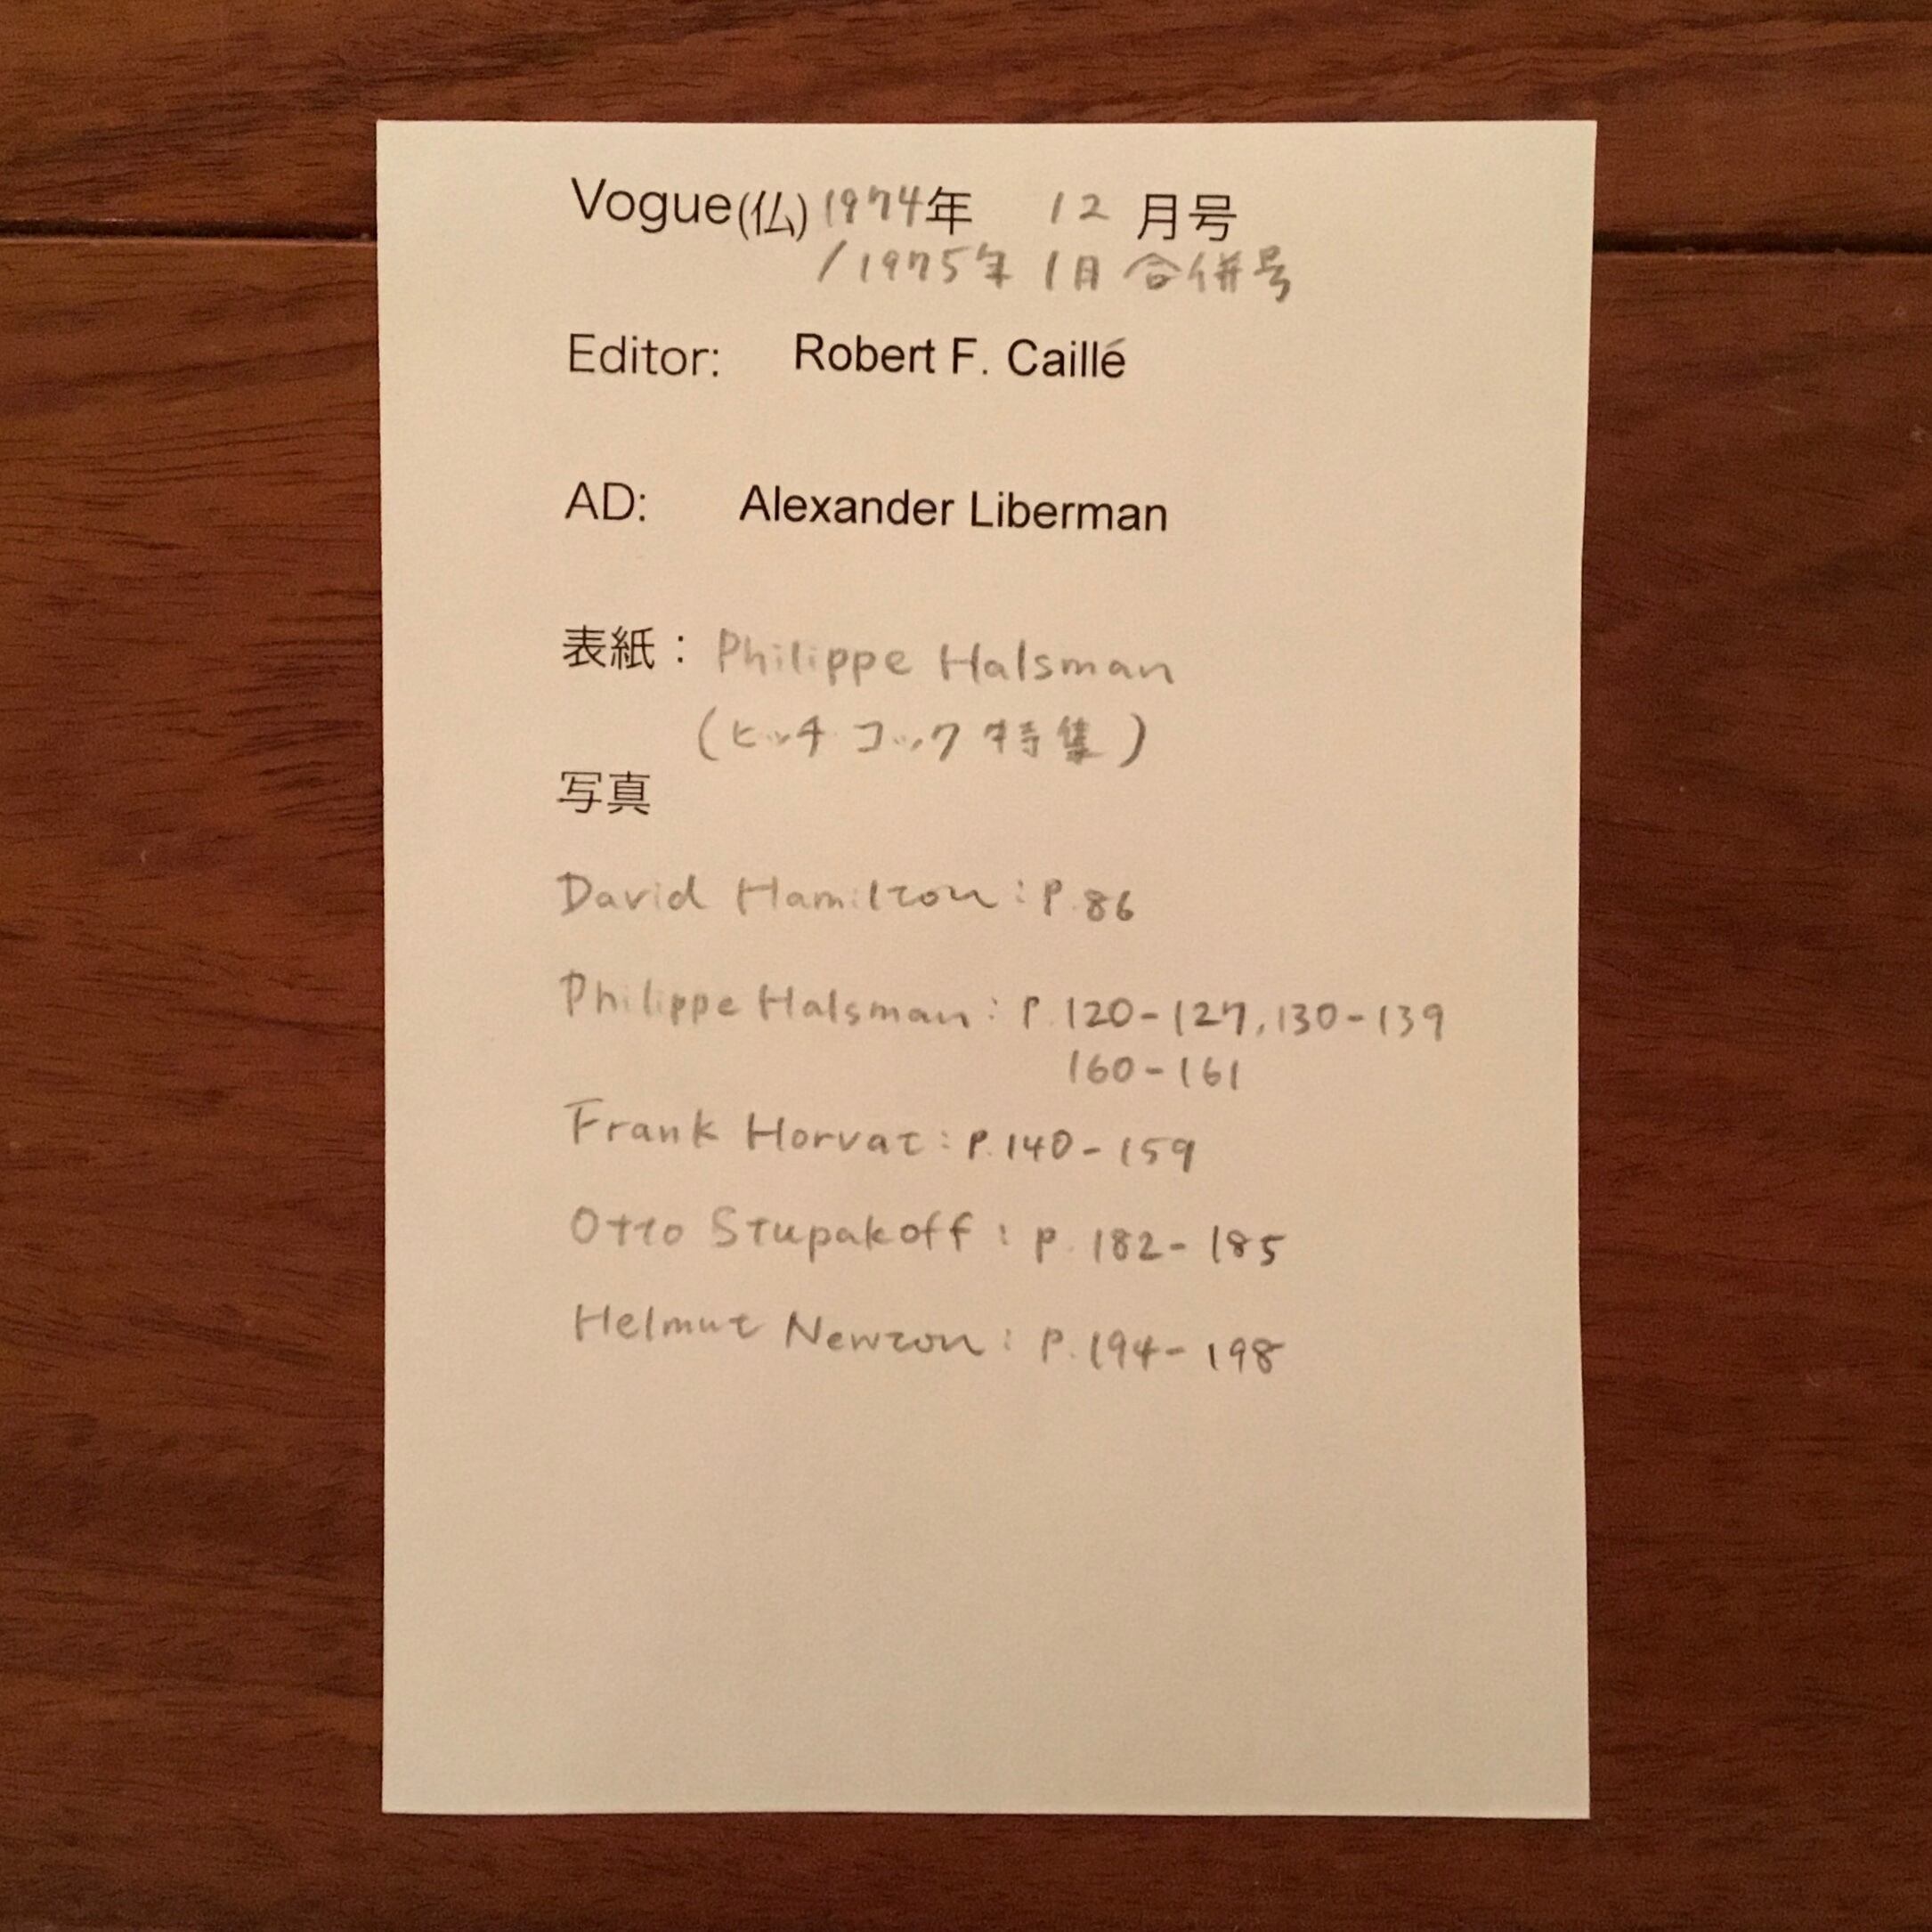 Vogue(仏) 1974年 12月号
/1975年 1月 合併号
Editor: Robert F. Caillé
AD: Alexander Liberman
表紙： Philippe Halsman
(ヒッチコック特集)
写真
David Hamilton: P.86
Philippe Halsman: P.120-127, 130-139
160-161
Frank Horvat: P.140-159
Otto Stupakoff: P.182-185
Helmut Newton: P.194-198